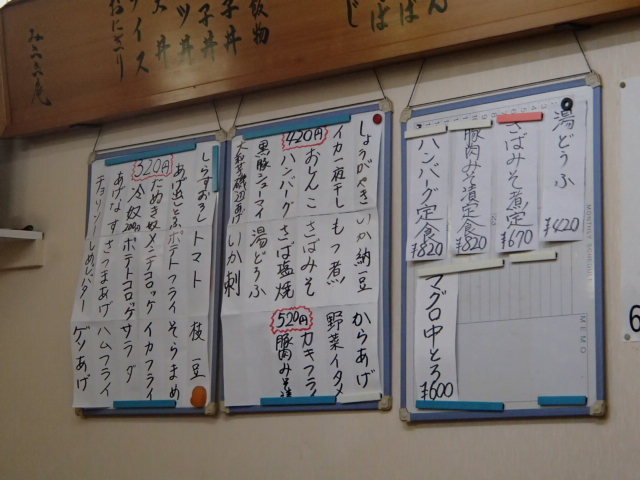 ん
ばば
じ
飯物
子丼
子丼
ツ丼
ス丼
イス
おにぎり
湯どうふ
¥420
さばみそ煮定
¥670
豚肉みそ漬定食
¥820
ハンバーグ定食
¥820
マグロ中とろ
¥600
MONTHLY SCHEDULE
MEMO
しょうがやき いか納豆 からあげ
イカ一夜干し もつ煮 野菜イタメ
おしんこ さばみそ カキフライ
420円
ハンバーグ さば塩焼
520円
豚肉みそ漬
黒豚シューマイ 湯どうふ
いか刺
しらすおろし トマト 枝豆
あげ出しとうふ ポテトフライ そらまめ
320円
たぬき奴 メンチコロッケ イカフライ
冷奴 ポテトコロッケ サラダ
あげなす さつまあげ ハムフライ
チョリソー しめじバター ゲソあげ
6